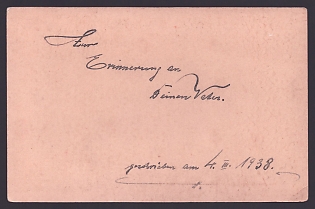 Zur
Erinnerung an
Deinen Vater.
geschrieben am 4. II. 1938.